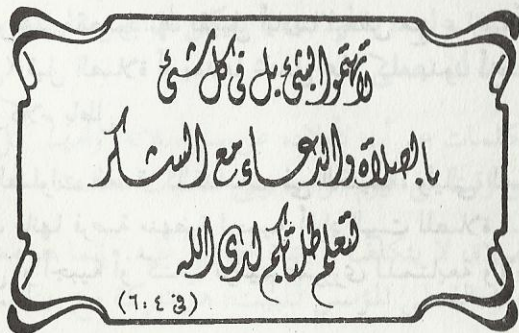 لا تهتموا بشئ بل في كل شئ
بالصلاة والدعاء مع الشكر
لتعلم طلباتكم لدى الله
(في ٤ : ٦)